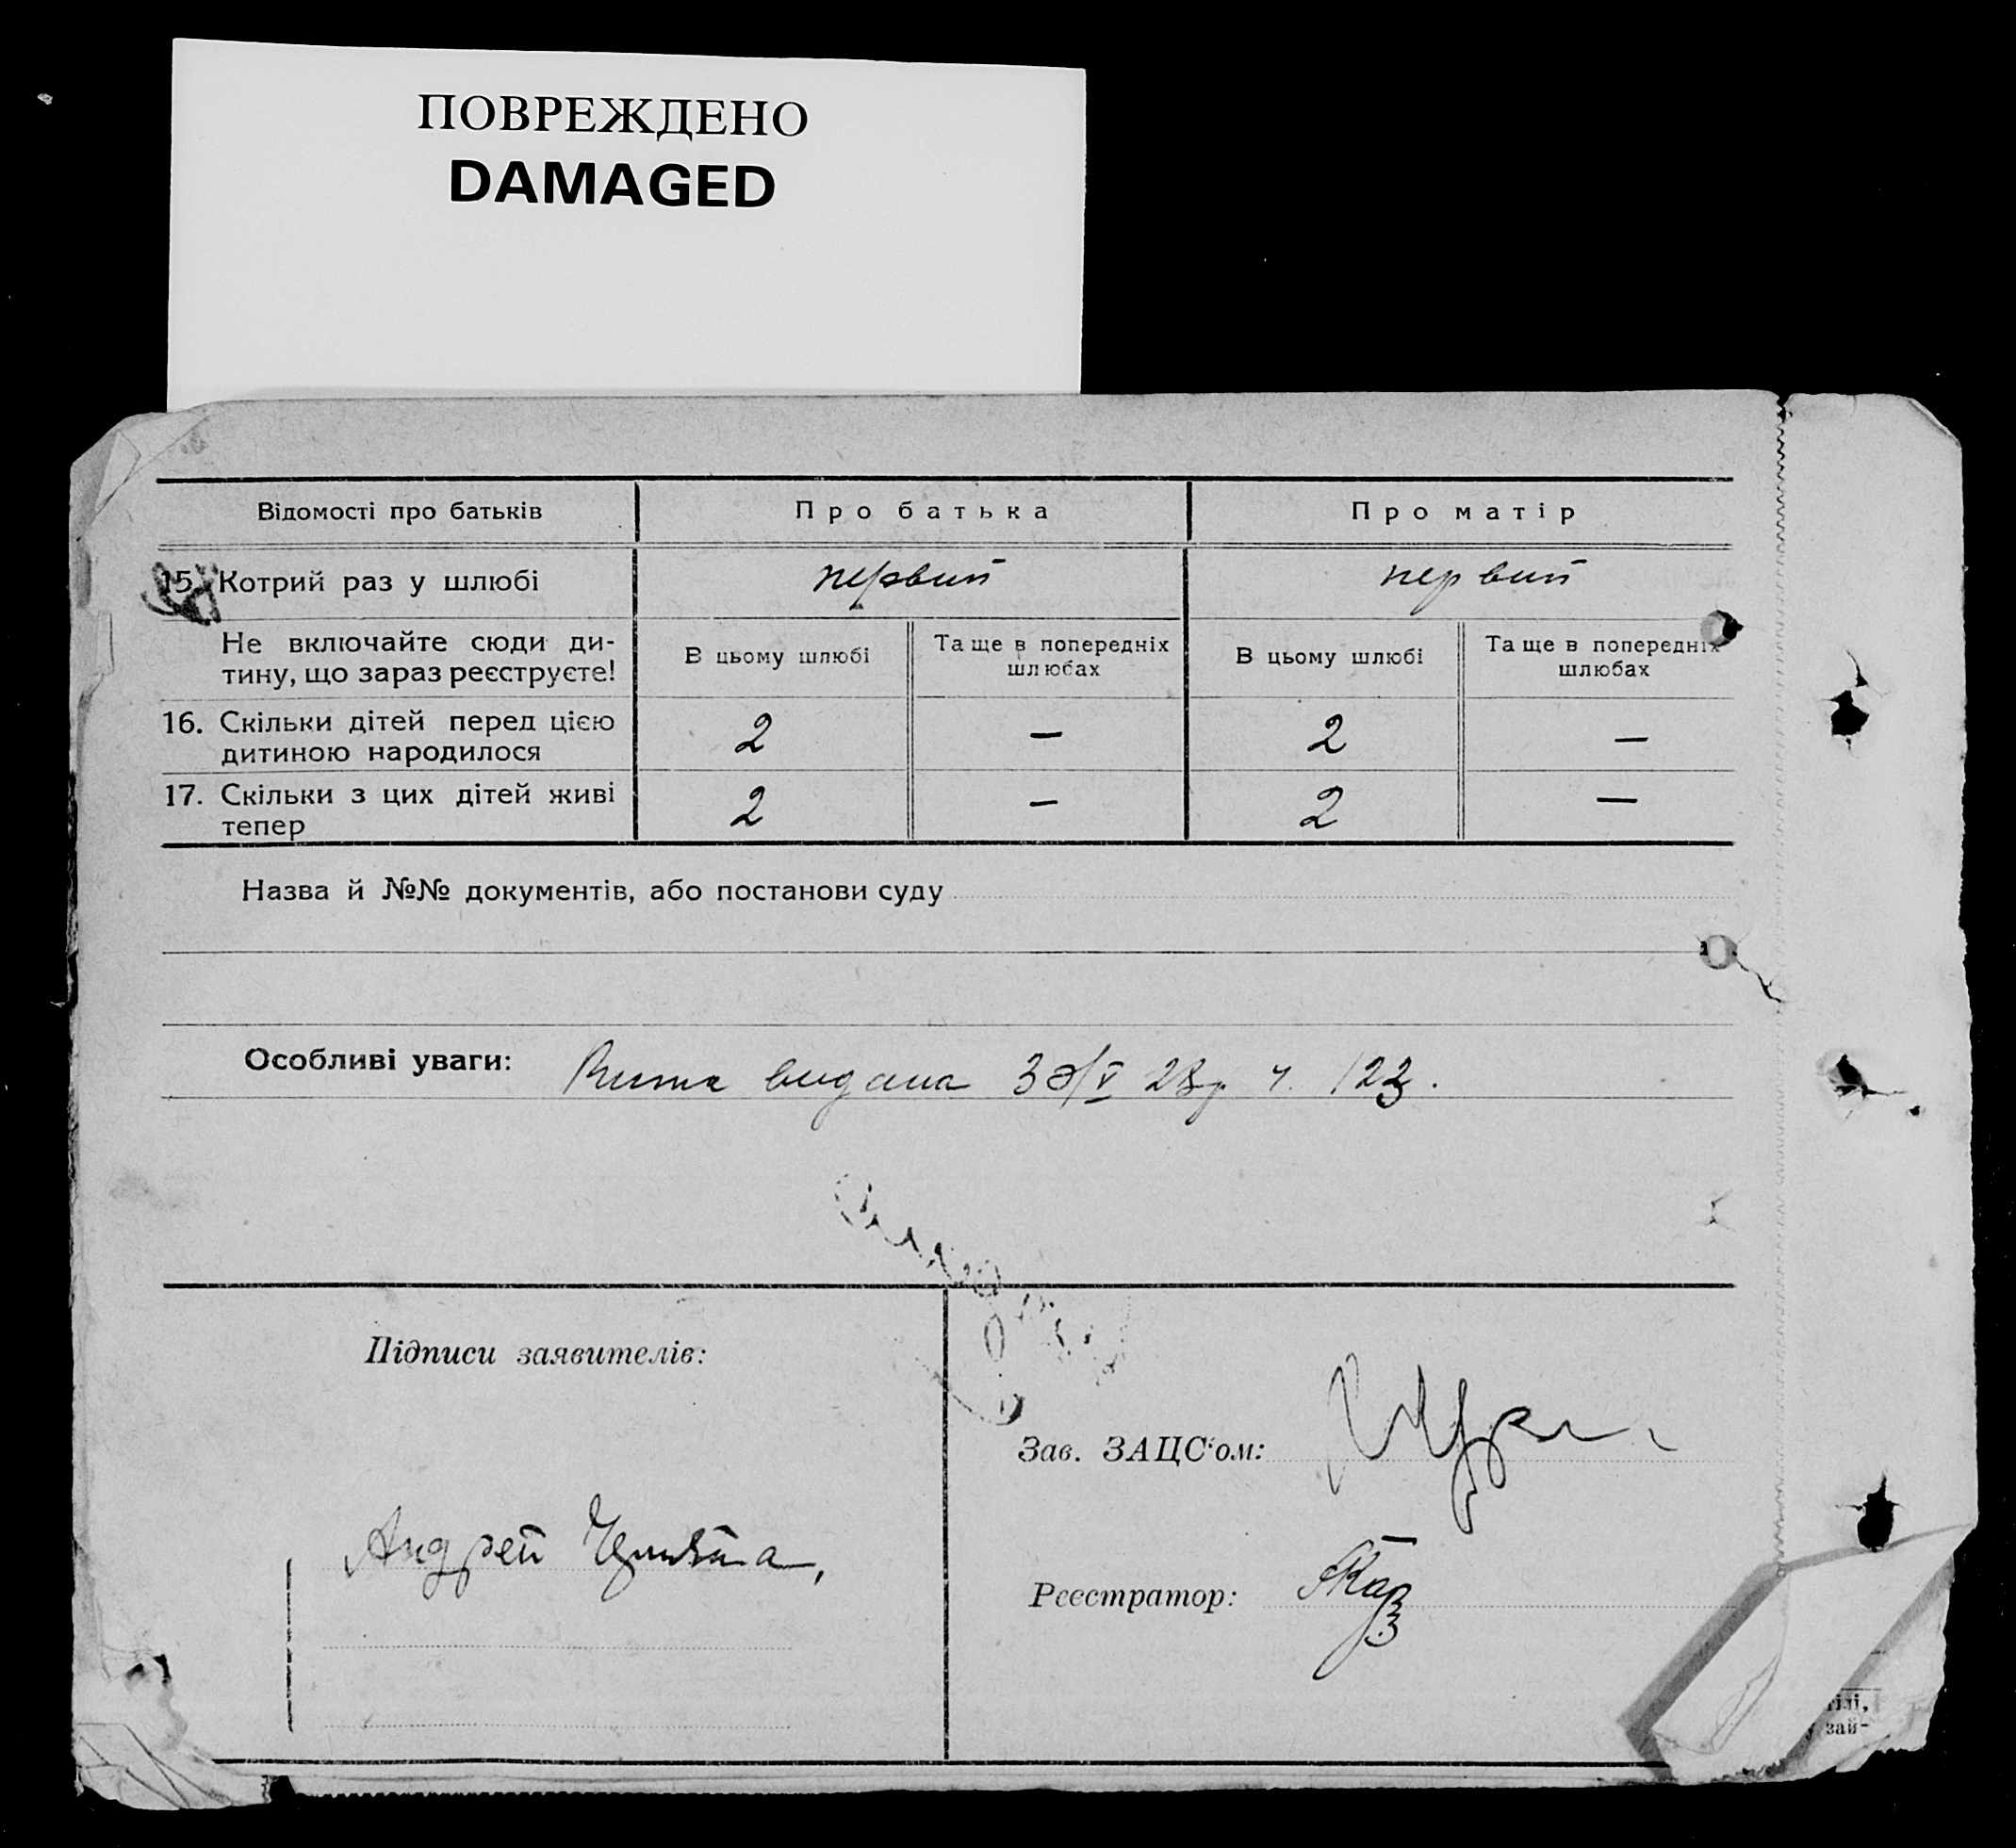 ПОВРЕЖДЕНО
DAMAGED
Відомості про батьків
Про батька
Про матір
15. Котрий раз у шлюбі
первий
первий
Не включайте сюди ди-
тину, що зараз реєструєте!
В цьому шлюбі
Та ще в попередніх
шлюбах
В цьому шлюбі
Та ще в попередніх
шлюбах
16. Скільки дітей перед цією
дитиною народилося
2
—
2
—
17. Скільки з цих дітей живі
тепер
2
—
2
—
Назва й №№ документів, або постанови суду
Особливі уваги:
видана 30/V 28р ч. 123.
Підписи заявителів:
Зав. ЗАЦС'ом:
Андрей
Реєстратор:
ілі,
у зай-